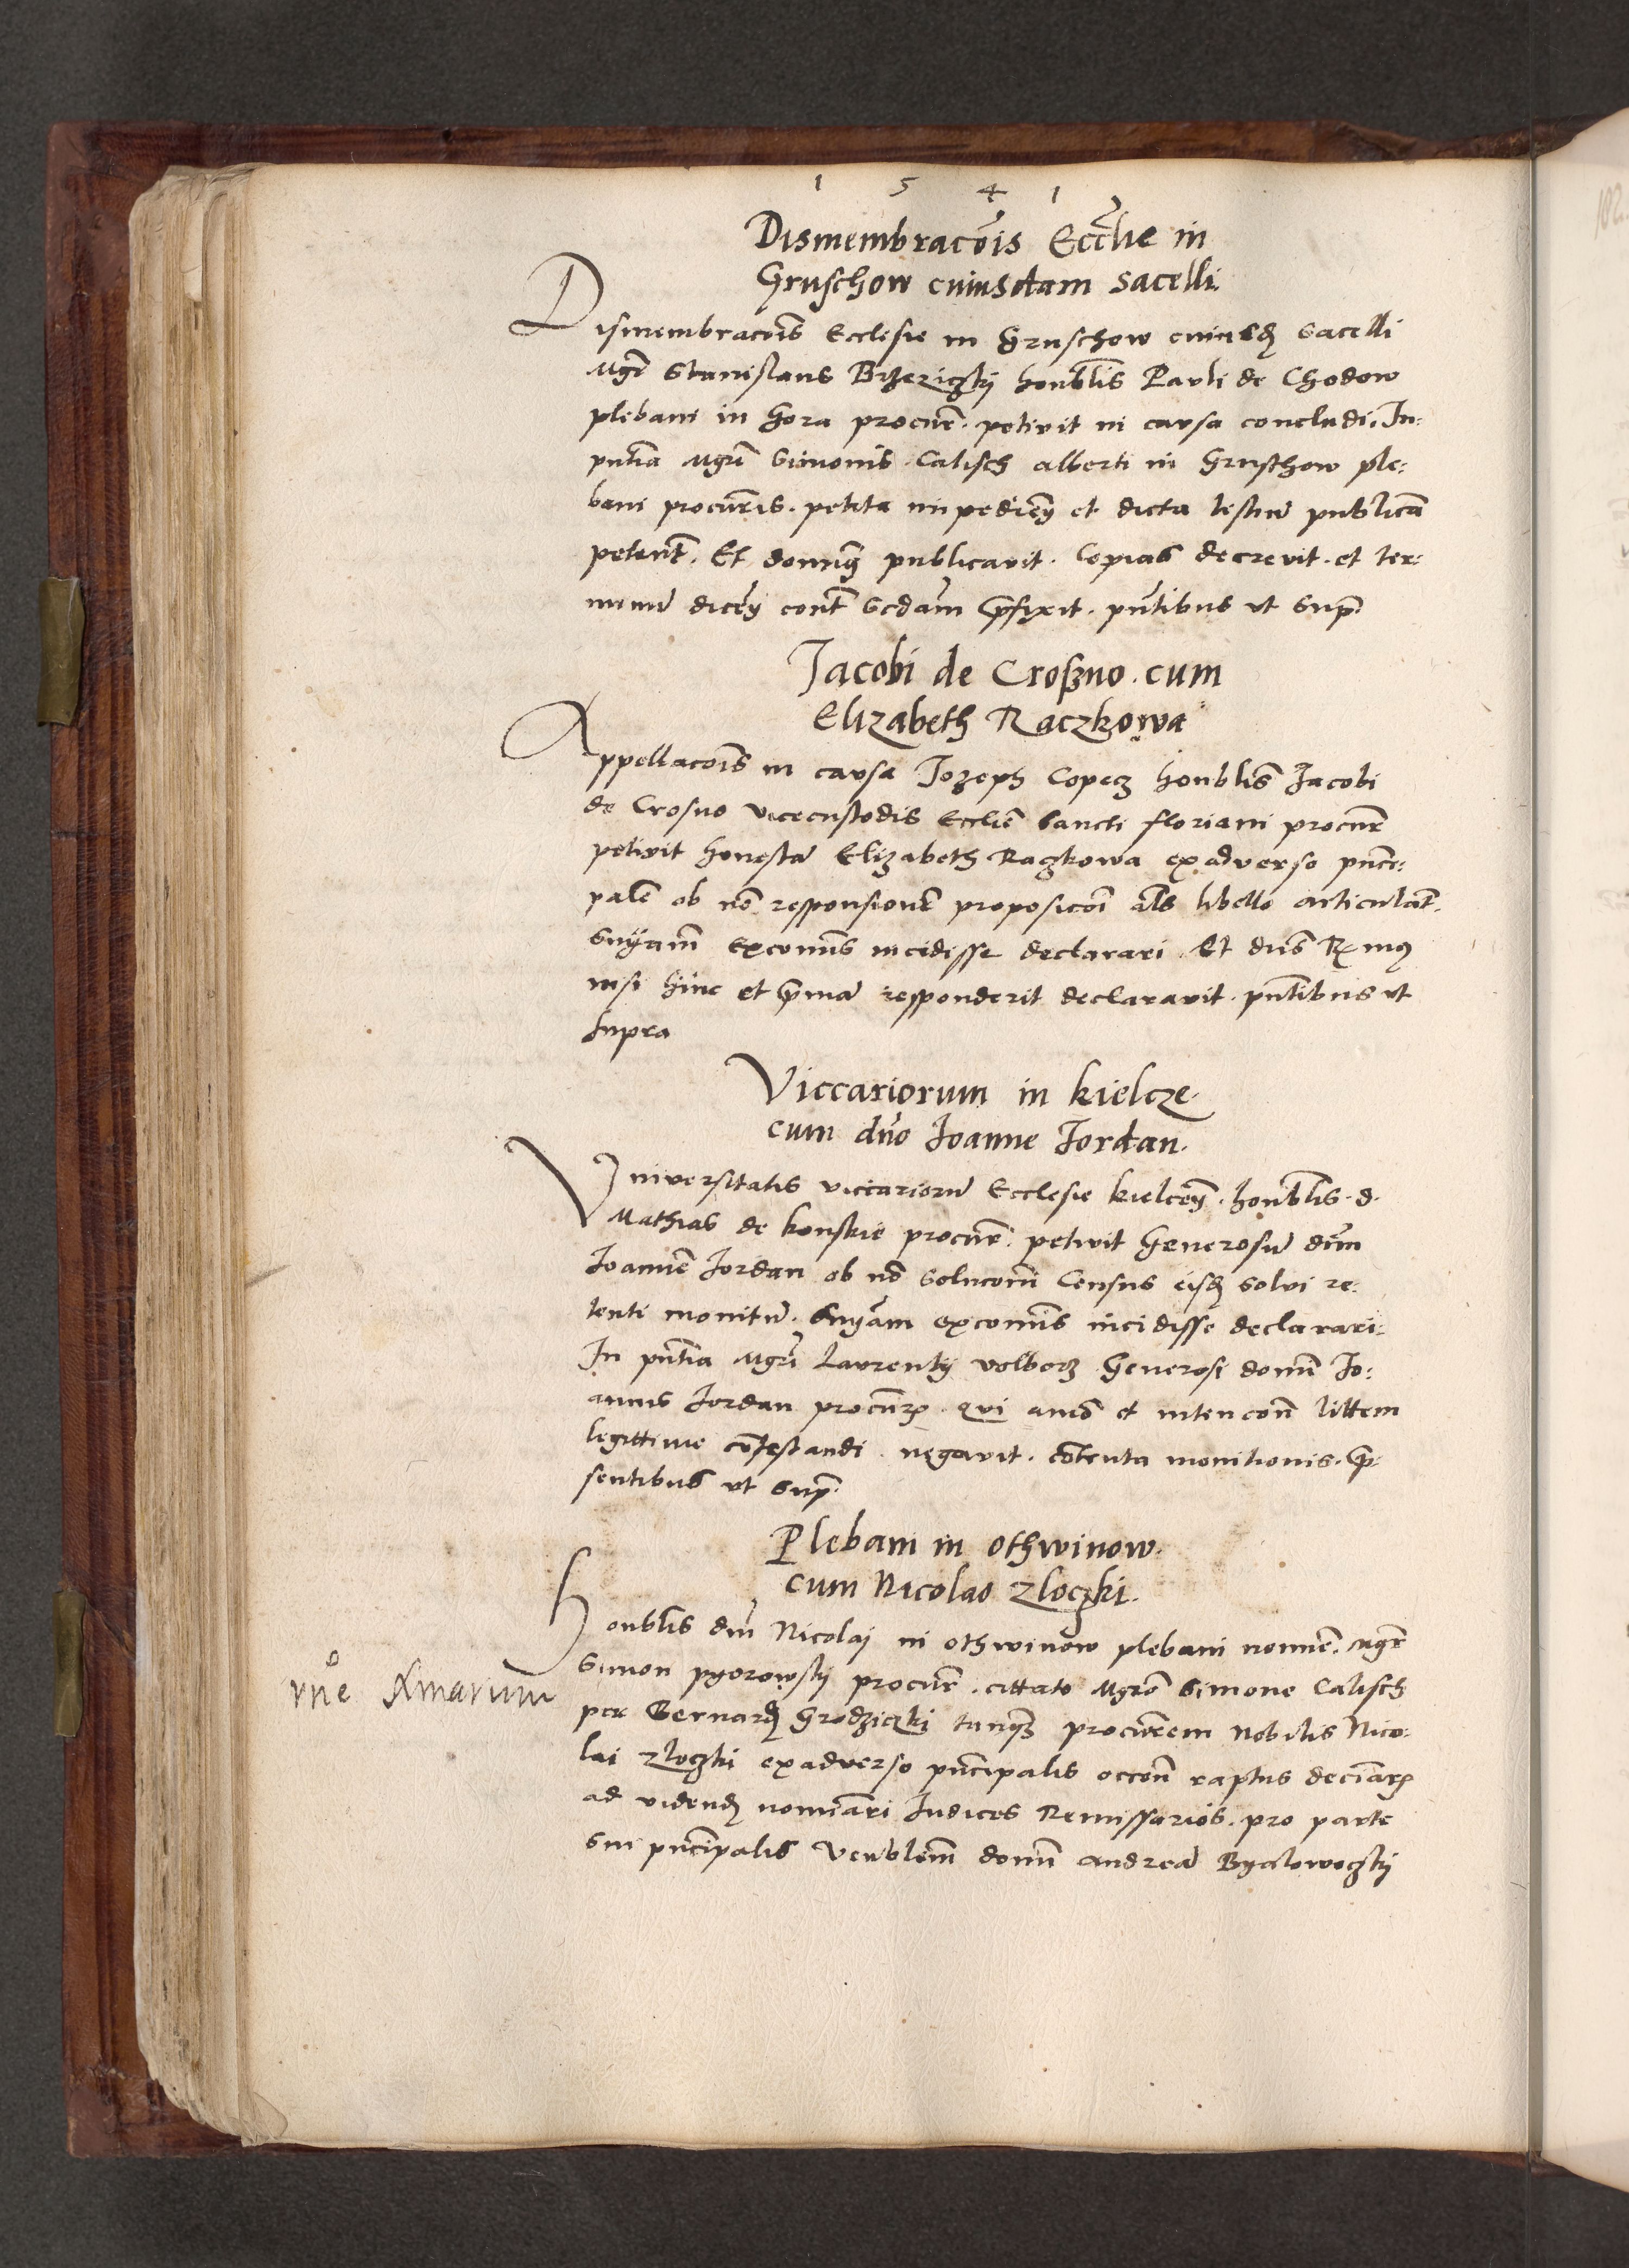 1 5 4 1
Dismembracõis Eccl̃ie in
Gruschow cuiusdam sacelli.
Dismembracõis Ecclesie in Gruschow cuiusđ sacelli
Mgr̃ Stanislaus Brzeziczkÿ honbl̃is Pauli de Chodow
plebani in Gora procur̃. petivit in causa concludi. In
pñtia Mgr̃i Simonis Calisch alberti in Gruschow ple:
bani procur̃is. petita impedieñ et dicta testiũ publicã
petent̃. Et domiñ publicavit. Copias decrevit. et ter:
minũ diceñ cont̃ scđam p̃fixit. pñtibus ut sup̃.
Jacobi de Croßno. cum
Elizabeth Raczkowa
Appellacõis in causa Jozeph Copecz honbl̃is Jacobi
de Crosno vicecustodis Eccl̃ie Sancti floriani procur̃
petivit honestã Elizabeth Raczkowa ex adverso pñci:
palẽ ob nõ responsionẽ proposicõi al̃s libello articulat̃.
snÿam excomũs incidisse declarari. Et dñs R mus
nisi hinc et p̃mã responderit declaravit. pñtibus ut
supra
Viccariorum in kielcze.
cum dño Joanne Jordan.
Vniversitatis viccariorũ Ecclesie kielceñ. honbl̃is. d.
Mathias de konskie procur̃. petivit Generosũ dñm
Joannẽ Jordan ob nõ solucoñi Census eisđ solvi re:
tenti monitũ. snÿam excomũs incidisse declarari:
In pñtia Mgr̃i Laurentÿ volborz Generosi domĩ Jo:
annis Jordan procur̃. qui animõ et intencoñ littem
legittime cõtestandi. negavit. cõtenta monitionis. p̃:
sentibus ut sup̃.
Plebani in othwinow.
cum Nicolao Zloczki.
Honbl̃is dñi Nicolaj in othwinow plebani nomĩe. Mgr̃
Simon pyorowskÿ procur̃. cittato Mgr̃o Simone Calisch
per Bernarđ Grodziczki tanq̃ procur̃em Nobilis Nico:
lai Zloczki ex adverso pñcipalis occoñ raptus decimar̃
ad videnđ nomiãri Judices Remissarios. pro parte
sui pñcipalis Venbl̃em domĩ andreã Byalowoczkÿ